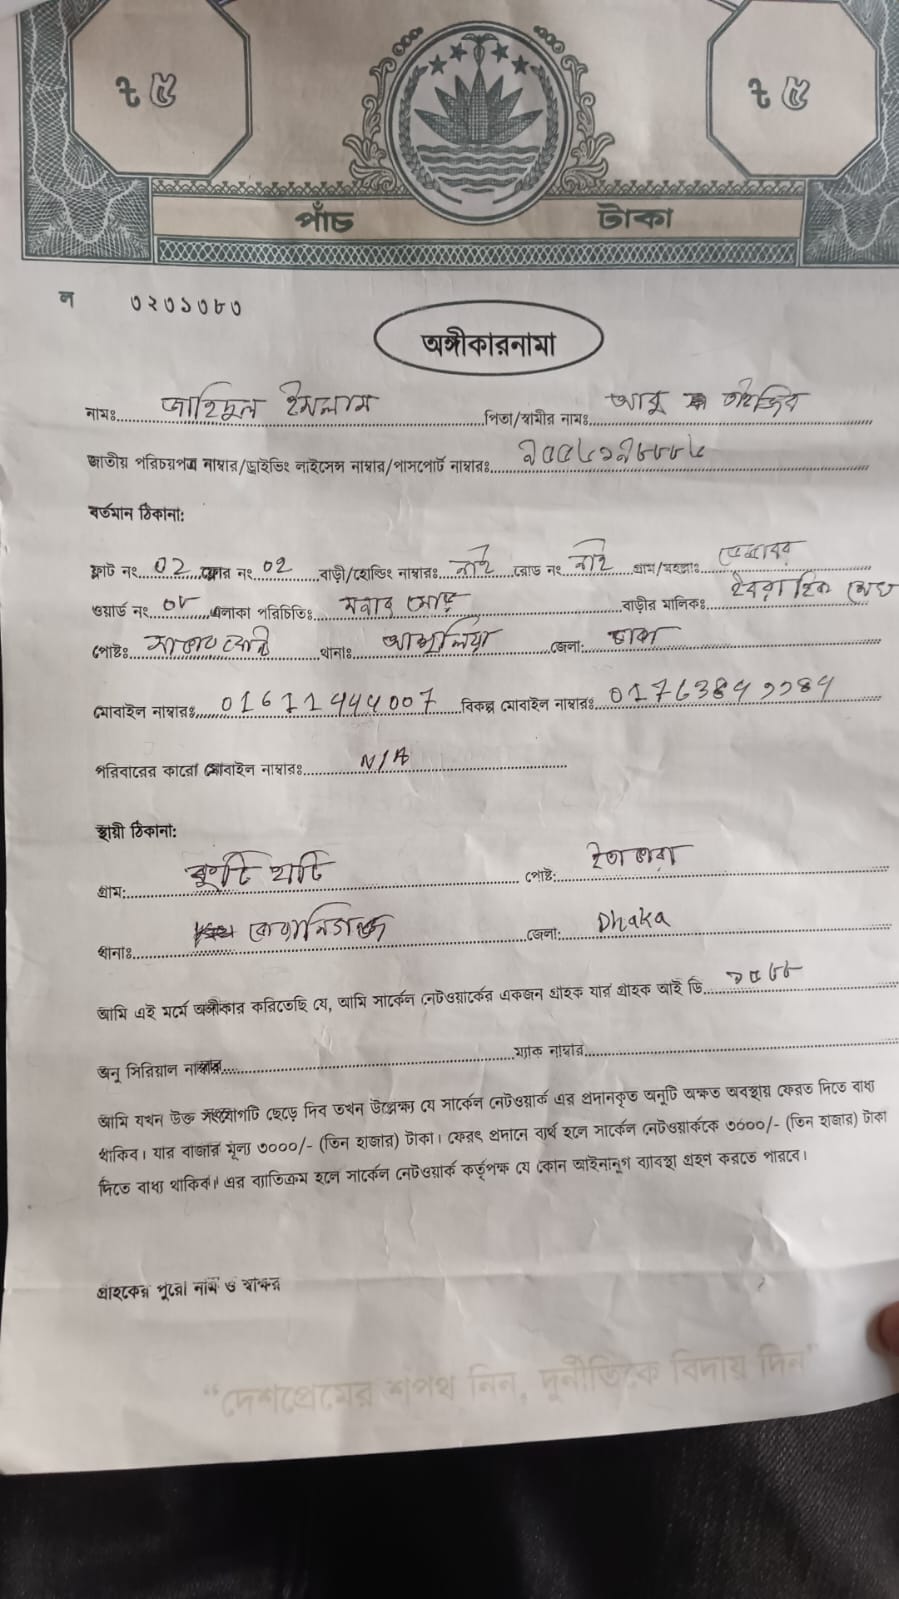 ৳ ৫ ৳ ৫
পাঁচ টাকা
ল ৩২৩১৩৮৩
অঙ্গীকারনামা
নামঃ জাহিদুল ইসলাম পিতা/স্বামীর নামঃ আবু
জাতীয় পরিচয়পত্র নাম্বার/ড্রাইভিং লাইসেন্স নাম্বার/পাসপোর্ট নাম্বারঃ
বর্তমান ঠিকানা:
ফ্লাট নং 02 ফ্লোর নং 02 বাড়ী/হোল্ডিং নাম্বারঃ নাই রোড নং নাই গ্রাম/মহল্লাঃ
ওয়ার্ড নং ০৮ এলাকা পরিচিতিঃ বাড়ীর মালিকঃ
পোষ্টঃ থানাঃ আশুলিয়া জেলা: ঢাকা
মোবাইল নাম্বারঃ বিকল্প মোবাইল নাম্বারঃ
পরিবারের কারো মোবাইল নাম্বারঃ N/A
স্থায়ী ঠিকানা:
গ্রাম: পোষ্ট:
থানাঃ জেলা: Dhaka
আমি এই মর্মে অঙ্গীকার করিতেছি যে, আমি সার্কেল নেটওয়ার্কের একজন গ্রাহক যার গ্রাহক আই ডি ১৫৮৮
অনু সিরিয়াল নাম্বার ম্যাক নাম্বার
আমি যখন উক্ত সংযোগটি ছেড়ে দিব তখন উল্লেক্ষ্য যে সার্কেল নেটওয়ার্ক এর প্রদানকৃত অনুটি অক্ষত অবস্থায় ফেরত দিতে বাধ্য
থাকিব। যার বাজার মূল্য ৩০০০/- (তিন হাজার) টাকা। ফেরৎ প্রদানে ব্যর্থ হলে সার্কেল নেটওয়ার্ককে ৩০০০/- (তিন হাজার) টাকা
দিতে বাধ্য থাকিব। এর ব্যতিক্রম হলে সার্কেল নেটওয়ার্ক কর্তৃপক্ষ যে কোন আইনানুগ ব্যাবস্থা গ্রহণ করতে পারবে।
গ্রাহকের পুরো নাম ও স্বাক্ষর
“দেশপ্রেমের শপথ নিন, দুর্নীতিকে বিদায় দিন”